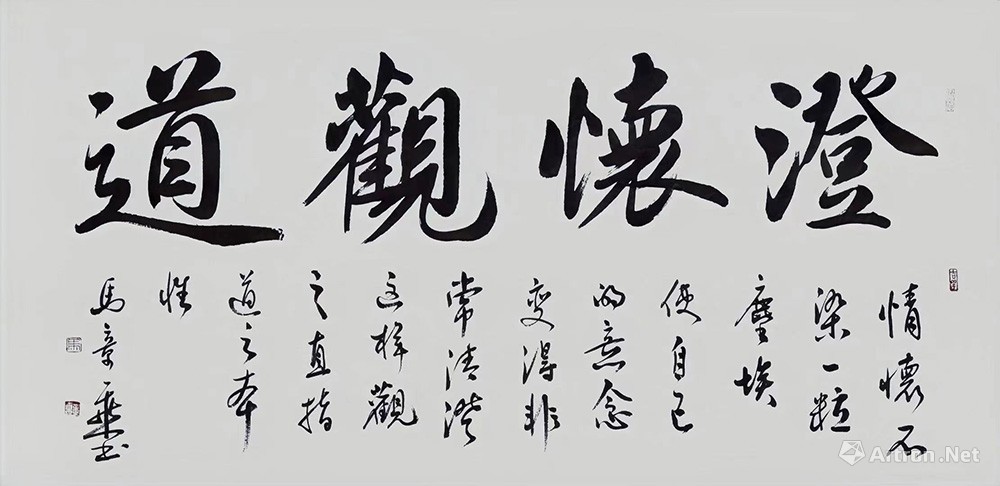 澄懷觀道
情懷不
染一粒
塵埃
使自己
的意念
變得非
常清澄
这样觀
之直指
道之本
性
馬章乘书
Artron.Net